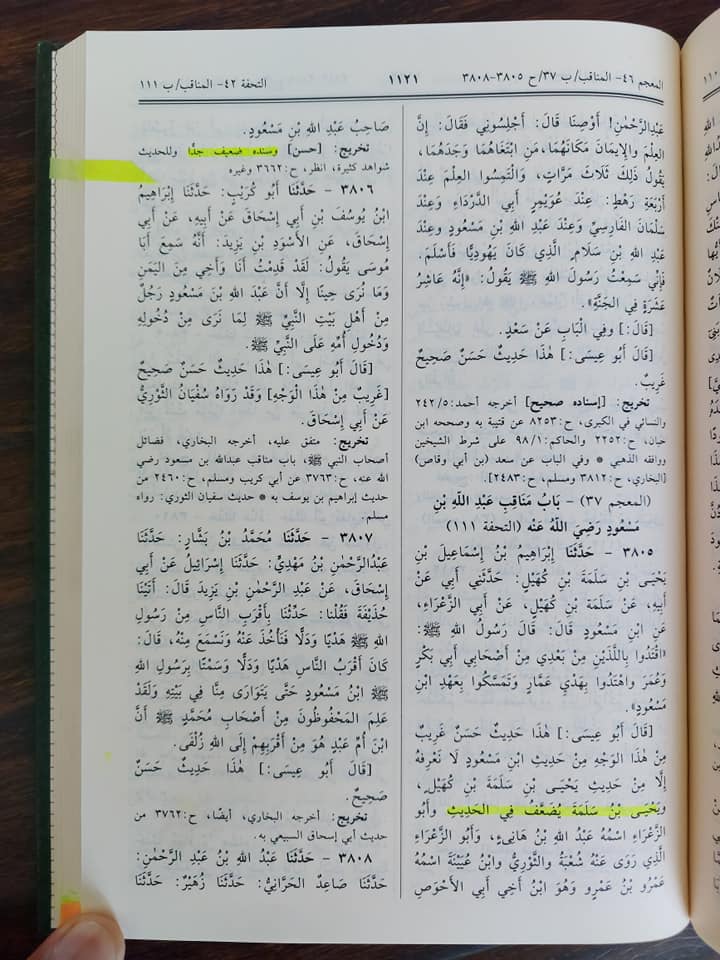 المعجم ٤٦- المناقب/ ب ٣٧/ ح ٣٨٠٥-٣٨٠٨
١١٢١
التحفة ٤٢- المناقب/ ب ١١١
عَبْدِالرَّحْمٰنِ! أَوْصِنَا قَالَ: أَجْلِسُونِي فَقَالَ: إِنَّ
الْعِلْمَ وَالإِيمَانَ مَكَانَهُمَا، مَنِ ابْتَغَاهُمَا وَجَدَهُمَا،
يَقُولُ ذَلِكَ ثَلَاثَ مَرَّاتٍ، وَالْتَمِسُوا الْعِلْمَ عِنْدَ
أَرْبَعَةِ رَهْطٍ: عِنْدَ عُوَيْمِرٍ أَبِي الدَّرْدَاءِ وَعِنْدَ
سَلْمَانَ الْفَارِسِيِّ وَعِنْدَ عَبْدِ اللهِ بْنِ مَسْعُودٍ وَعِنْدَ
عَبْدِ اللهِ بْنِ سَلَامٍ الَّذِي كَانَ يَهُودِيًّا فَأَسْلَمَ.
فَإِنِّي سَمِعْتُ رَسُولَ اللهِ ﷺ يَقُولُ: «إِنَّهُ عَاشِرُ
عَشَرَةٍ فِي الْجَنَّةِ».
[قَالَ:] وَفِي الْبَابِ عَنْ سَعْدٍ.
[قَالَ أَبُو عِيسَى:] هٰذَا حَدِيثٌ حَسَنٌ صَحِيحٌ
غَرِيبٌ.
تخريج: [إسناده صحيح] أخرجه أحمد:٢٤٢/٥
والنسائي في الكبرى، ح:٨٢٥٣ عن قتيبة به وصححه ابن
حبان، ح:٢٢٥٢ والحاكم:٩٨/١ على شرط الشيخين
ووافقه الذهبي * وفي الباب عن سعد (بن أبي وقاص)
[البخاري، ح:٣٨١٢ ومسلم، ح:٢٤٨٣].
(المعجم ٣٧) - بَابُ مَنَاقِبِ عَبْدِ اللهِ بْنِ
مَسْعُودٍ رَضِيَ اللَّهُ عَنْهُ (التحفة ١١١)
٣٨٠٥ - حَدَّثَنَا إِبْرَاهِيمُ بْنُ إِسْمَاعِيلَ بْنِ
يَحْيَى بْنِ سَلَمَةَ بْنِ كُهَيْلٍ: حَدَّثَنِي أَبِي عَنْ
أَبِيهِ، عَنْ سَلَمَةَ بْنِ كُهَيْلٍ، عَنْ أَبِي الزَّعْرَاءِ،
عَنِ ابْنِ مَسْعُودٍ قَالَ: قَالَ رَسُولُ اللهِ ﷺ:
«اقْتَدُوا بِاللَّذَيْنِ مِنْ بَعْدِي مِنْ أَصْحَابِي أَبِي بَكْرٍ
وَعُمَرَ وَاهْتَدُوا بِهَدْيِ عَمَّارٍ وَتَمَسَّكُوا بِعَهْدِ ابْنِ
مَسْعُودٍ».
[قَالَ أَبُو عِيسَى:] هٰذَا حَدِيثٌ حَسَنٌ غَرِيبٌ
مِنْ هٰذَا الْوَجْهِ مِنْ حَدِيثِ ابْنِ مَسْعُودٍ لَا نَعْرِفُهُ
إِلَّا مِنْ حَدِيثِ يَحْيَى بْنِ سَلَمَةَ بْنِ كُهَيْلٍ،
وَيَحْيَى بْنُ سَلَمَةَ يُضَعَّفُ فِي الْحَدِيثِ وَأَبُو
الزَّعْرَاءِ اسْمُهُ عَبْدُ اللهِ بْنُ هَانِىءٍ، وَأَبُو الزَّعْرَاءِ
الَّذِي رَوَى عَنْهُ شُعْبَةُ وَالثَّوْرِيُّ وَابْنُ عُيَيْنَةَ اسْمُهُ
عَمْرُو بْنُ عَمْرٍو وَهُوَ ابْنُ أَخِي أَبِي الْأَحْوَصِ
صَاحِبُ عَبْدِ اللهِ بْنِ مَسْعُودٍ.
تخريج: [حسن] وسنده ضعيف جدًّا وللحديث
شواهد كثيرة، انظر، ح:٣٦٦٢ وغيره
٣٨٠٦ - حَدَّثَنَا أَبُو كُرَيْبٍ: حَدَّثَنَا إِبْرَاهِيمُ
ابْنُ يُوسُفَ بْنِ أَبِي إِسْحَاقَ عَنْ أَبِيهِ، عَنْ أَبِي
إِسْحَاقَ، عَنِ الْأَسْوَدِ بْنِ يَزِيدَ: أَنَّهُ سَمِعَ أَبَا
مُوسَى يَقُولُ: لَقَدْ قَدِمْتُ أَنَا وَأَخِي مِنَ الْيَمَنِ
وَمَا نُرَى حِينًا إِلَّا أَنَّ عَبْدَ اللهِ بْنَ مَسْعُودٍ رَجُلٌ
مِنْ أَهْلِ بَيْتِ النَّبِيِّ ﷺ لِمَا نَرَى مِنْ دُخُولِهِ
وَدُخُولِ أُمِّهِ عَلَى النَّبِيِّ ﷺ.
[قَالَ أَبُو عِيسَى:] هٰذَا حَدِيثٌ حَسَنٌ صَحِيحٌ
[غَرِيبٌ مِنْ هٰذَا الْوَجْهِ] وَقَدْ رَوَاهُ سُفْيَانُ الثَّوْرِيُّ
عَنْ أَبِي إِسْحَاقَ.
تخريج: متفق عليه، أخرجه البخاري، فضائل
أصحاب النبي ﷺ، باب مناقب عبدالله بن مسعود رضي
الله عنه، ح:٣٧٦٣ عن أبي كريب ومسلم، ح:٢٤٦٠ من
حديث إبراهيم بن يوسف به * حديث سفيان الثوري: رواه
مسلم.
٣٨٠٧ - حَدَّثَنَا مُحَمَّدُ بْنُ بَشَّارٍ: حَدَّثَنَا
عَبْدُالرَّحْمٰنِ بْنُ مَهْدِيٍّ: حَدَّثَنَا إِسْرَائِيلُ عَنْ أَبِي
إِسْحَاقَ، عَنْ عَبْدِ الرَّحْمٰنِ بْنِ يَزِيدَ قَالَ: أَتَيْنَا
حُذَيْفَةَ فَقُلْنَا: حَدِّثْنَا بِأَقْرَبِ النَّاسِ مِنْ رَسُولِ
اللهِ ﷺ هَدْيًا وَدَلًّا فَنَأْخُذَ عَنْهُ وَنَسْمَعَ مِنْهُ، قَالَ:
كَانَ أَقْرَبُ النَّاسِ هَدْيًا وَدَلًّا وَسَمْتًا بِرَسُولِ اللهِ
ﷺ ابْنُ مَسْعُودٍ حَتَّى يَتَوَارَى مِنَّا فِي بَيْتِهِ وَلَقَدْ
عَلِمَ الْمَحْفُوظُونَ مِنْ أَصْحَابِ مُحَمَّدٍ ﷺ أَنَّ
ابْنَ أُمِّ عَبْدٍ هُوَ مِنْ أَقْرَبِهِمْ إِلَى اللهِ زُلْفَى.
[قَالَ أَبُو عِيسَى:] هٰذَا حَدِيثٌ حَسَنٌ
صَحِيحٌ.
تخريج: أخرجه البخاري، أيضًا، ح:٣٧٦٢ من
حديث أبي إسحاق السبيعي به.
٣٨٠٨ - حَدَّثَنَا عَبْدُ اللهِ بْنُ عَبْدِ الرَّحْمٰنِ:
حَدَّثَنَا صَاعِدٌ الْحَرَّانِيُّ: حَدَّثَنَا زُهَيْرٌ: حَدَّثَنَا